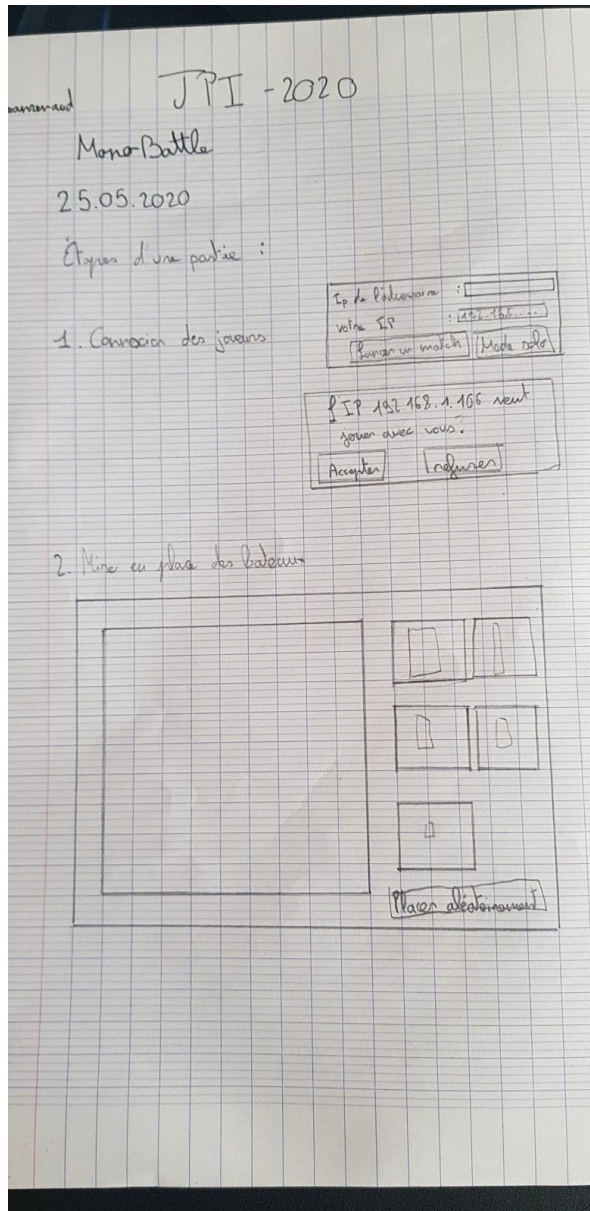 JPI - 2020
Mono Battle
25.05.2020
Étapes d'une partie :
1. Connexion des joueurs
Ip de l'adversaire :
votre IP : 192.168.....
Lancer un match Mode solo
L'IP 192.168.1.106 veut
jouer avec vous.
Accepter refuser
2. Mise en place des bateaux
Placer aléatoirement